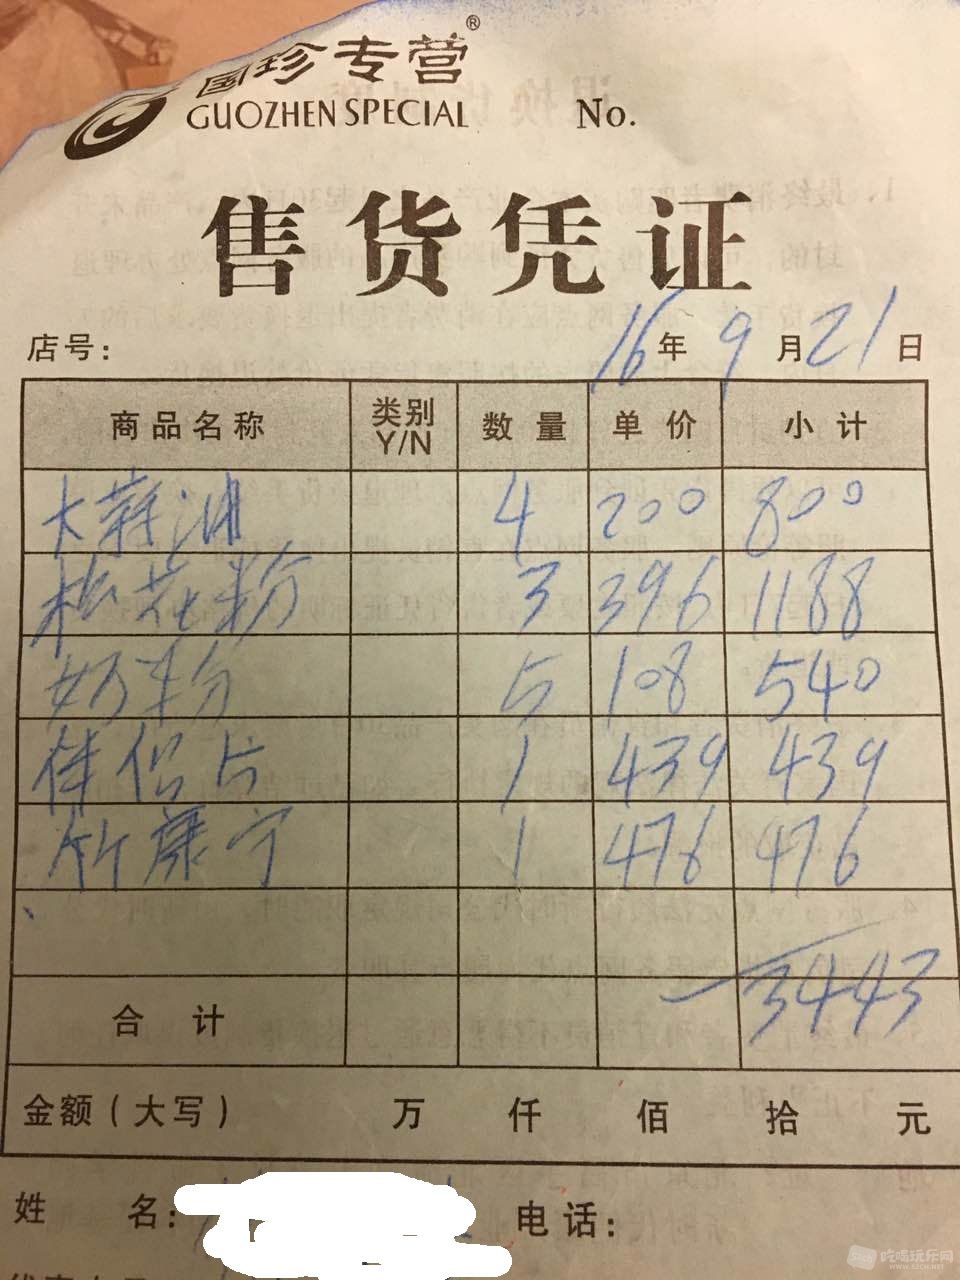 国珍专营®
GUOZHEN SPECIAL No.
售货凭证
店号： 16年 9月 21日
商品名称 类别 Y/N 数量 单价 小计
大蒜油 4 200 800
松花粉 3 396 1188
奶粉 5 108 540
伴侣片 1 439 439
竹康宁 1 476 476
3443
合计
金额（大写） 万 仟 佰 拾 元
姓名： 电话：
吃喝玩乐网